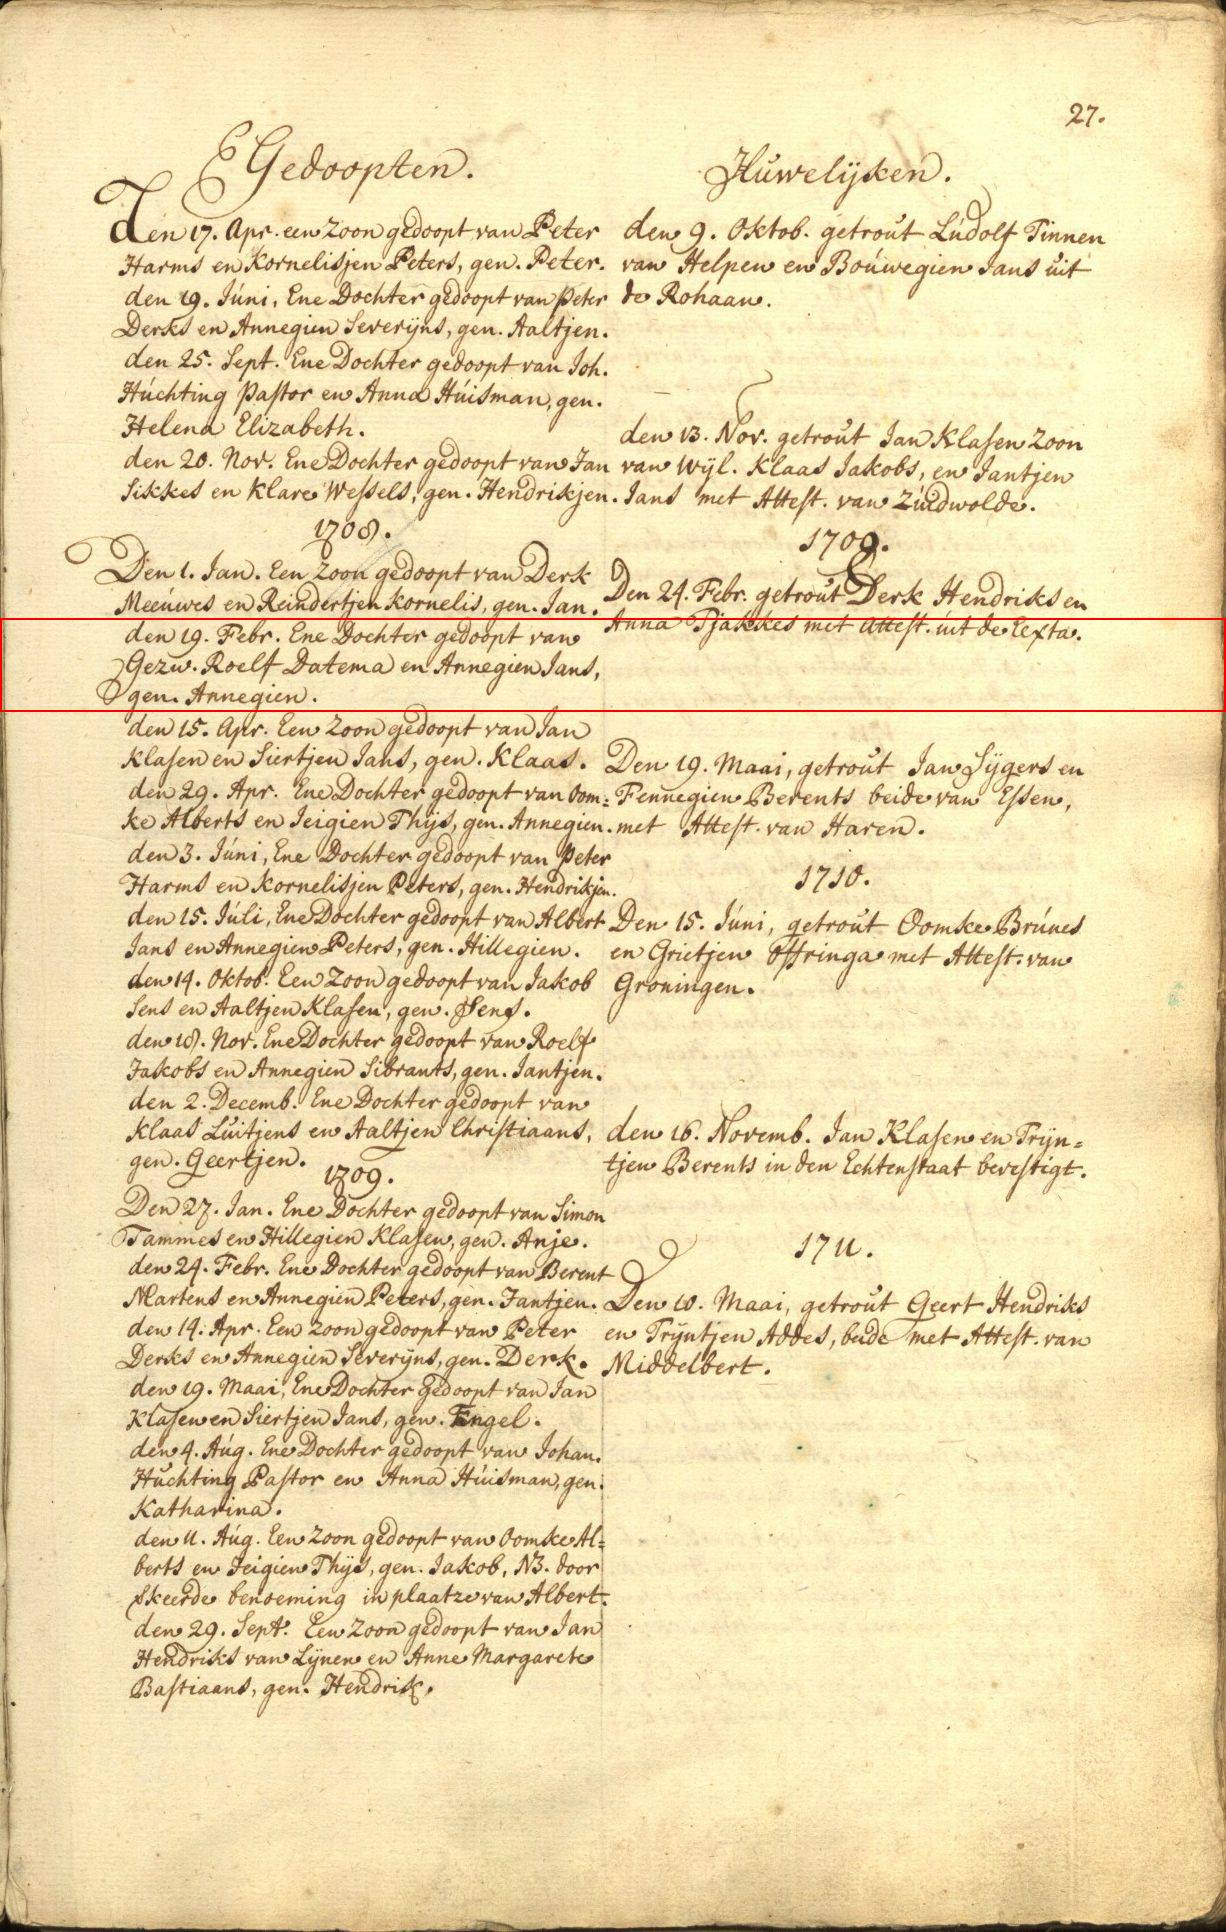 27.
Gedoopten.
Den 17. Apr. een Zoon gedoopt van Peter
Harms en Kornelisjen Peters, gen. Peter.
den 19. Júni, Ene Dochter gedoopt van Peter
Derks en Annegien Severijns, gen. Aaltjen.
den 25. Sept. Ene Dochter gedoopt van Joh.
Húchting Pastor en Anna Húisman, gen.
Helena Elizabeth.
den 20. Nov. Ene Dochter gedoopt van Jan
Sikkes en Klare Wessels, gen. Hendrikjen.
1708.
Den 1. Jan. Een Zoon gedoopt van Derk
Meeúwes en Reindertjen Kornelis, gen. Jan.
den 19. Febr. Ene Dochter gedoopt van
Gezw. Roelf Datema en Annegien Jans,
gen. Annegien.
den 15. Apr. Een Zoon gedoopt van Jan
Klasen en Siertjen Jans, gen. Klaas.
den 29. Apr. Ene Dochter gedoopt van Oom=
ke Alberts en Jeigien Thijs, gen. Annegien.
den 3. Júni, Ene Dochter gedoopt van Peter
Harms en Kornelisjen Peters, gen. Hendrikjen.
den 15. Júli, Ene Dochter gedoopt van Albert
Jans en Annegien Peters, gen. Hillegien.
den 14. Oktob. Een Zoon gedoopt van Jakob
Sens en Aaltjen Klasen, gen. Sens.
den 18. Nov. Ene Dochter gedoopt van Roelf
Jakobs en Annegien Sibrants, gen. Jantjen.
den 2. Decemb. Ene Dochter gedoopt van
Klaas Luitjens en Aaltjen Christiaans,
gen. Geertjen.
1709.
Den 27. Jan. Ene Dochter gedoopt van Simon
Tammes en Hillegien Klasen, gen. Anje.
den 24. Febr. Ene Dochter gedoopt van Berent
Martens en Annegien Peters, gen. Jantjen.
den 14. Apr. Een Zoon gedoopt van Peter
Derks en Annegien Severijns, gen. Derk.
den 19. Maai, Ene Dochter gedoopt van Jan
Klasen en Siertjen Jans, gen. Engel.
den 4. Aúg. Ene Dochter gedoopt van Johan.
Húchting Pastor en Anna Húisman, gen.
Katharina.
den 11. Aúg. Een Zoon gedoopt van Oomke Al=
berts en Jeigien Thijs, gen. Jakob, NB. door
skeerde benoeming in plaatze van Albert.
den 29. Sept. Een Zoon gedoopt van Jan
Hendriks van Lijnen en Anne Margarete
Bastiaans, gen. Hendrik.
Huwelijken.
den 9. Oktob. getrout Lúdolf Tinnen
van Helpen en Boúwegien Jans uit
de Rohaan.
den 13. Nov. getrout Jan Klasen Zoon
van Wijl. Klaas Jakobs, en Jantjen
Jans met Attest. van Zúidwolde.
1709.
Den 24. Febr. getrout Derk Hendriks en
Anna Tjakkes met Attest. uit de Eexta.
Den 19. Maai, getrout Jan Sijgers en
Fennegien Berents beide van Essen,
met Attest. van Haren.
1710.
Den 15. Júni, getrout Oomke Brúnes
en Grietjen Offringa met Attest. van
Groningen.
den 16. Novemb. Jan Klasen en Trijn=
tjen Berents in den Echtenstaat bevestigt.
1711.
Den 10. Maai, getrout Geert Hendriks
en Trijntjen Addes, beide met Attest. van
Middelbert.